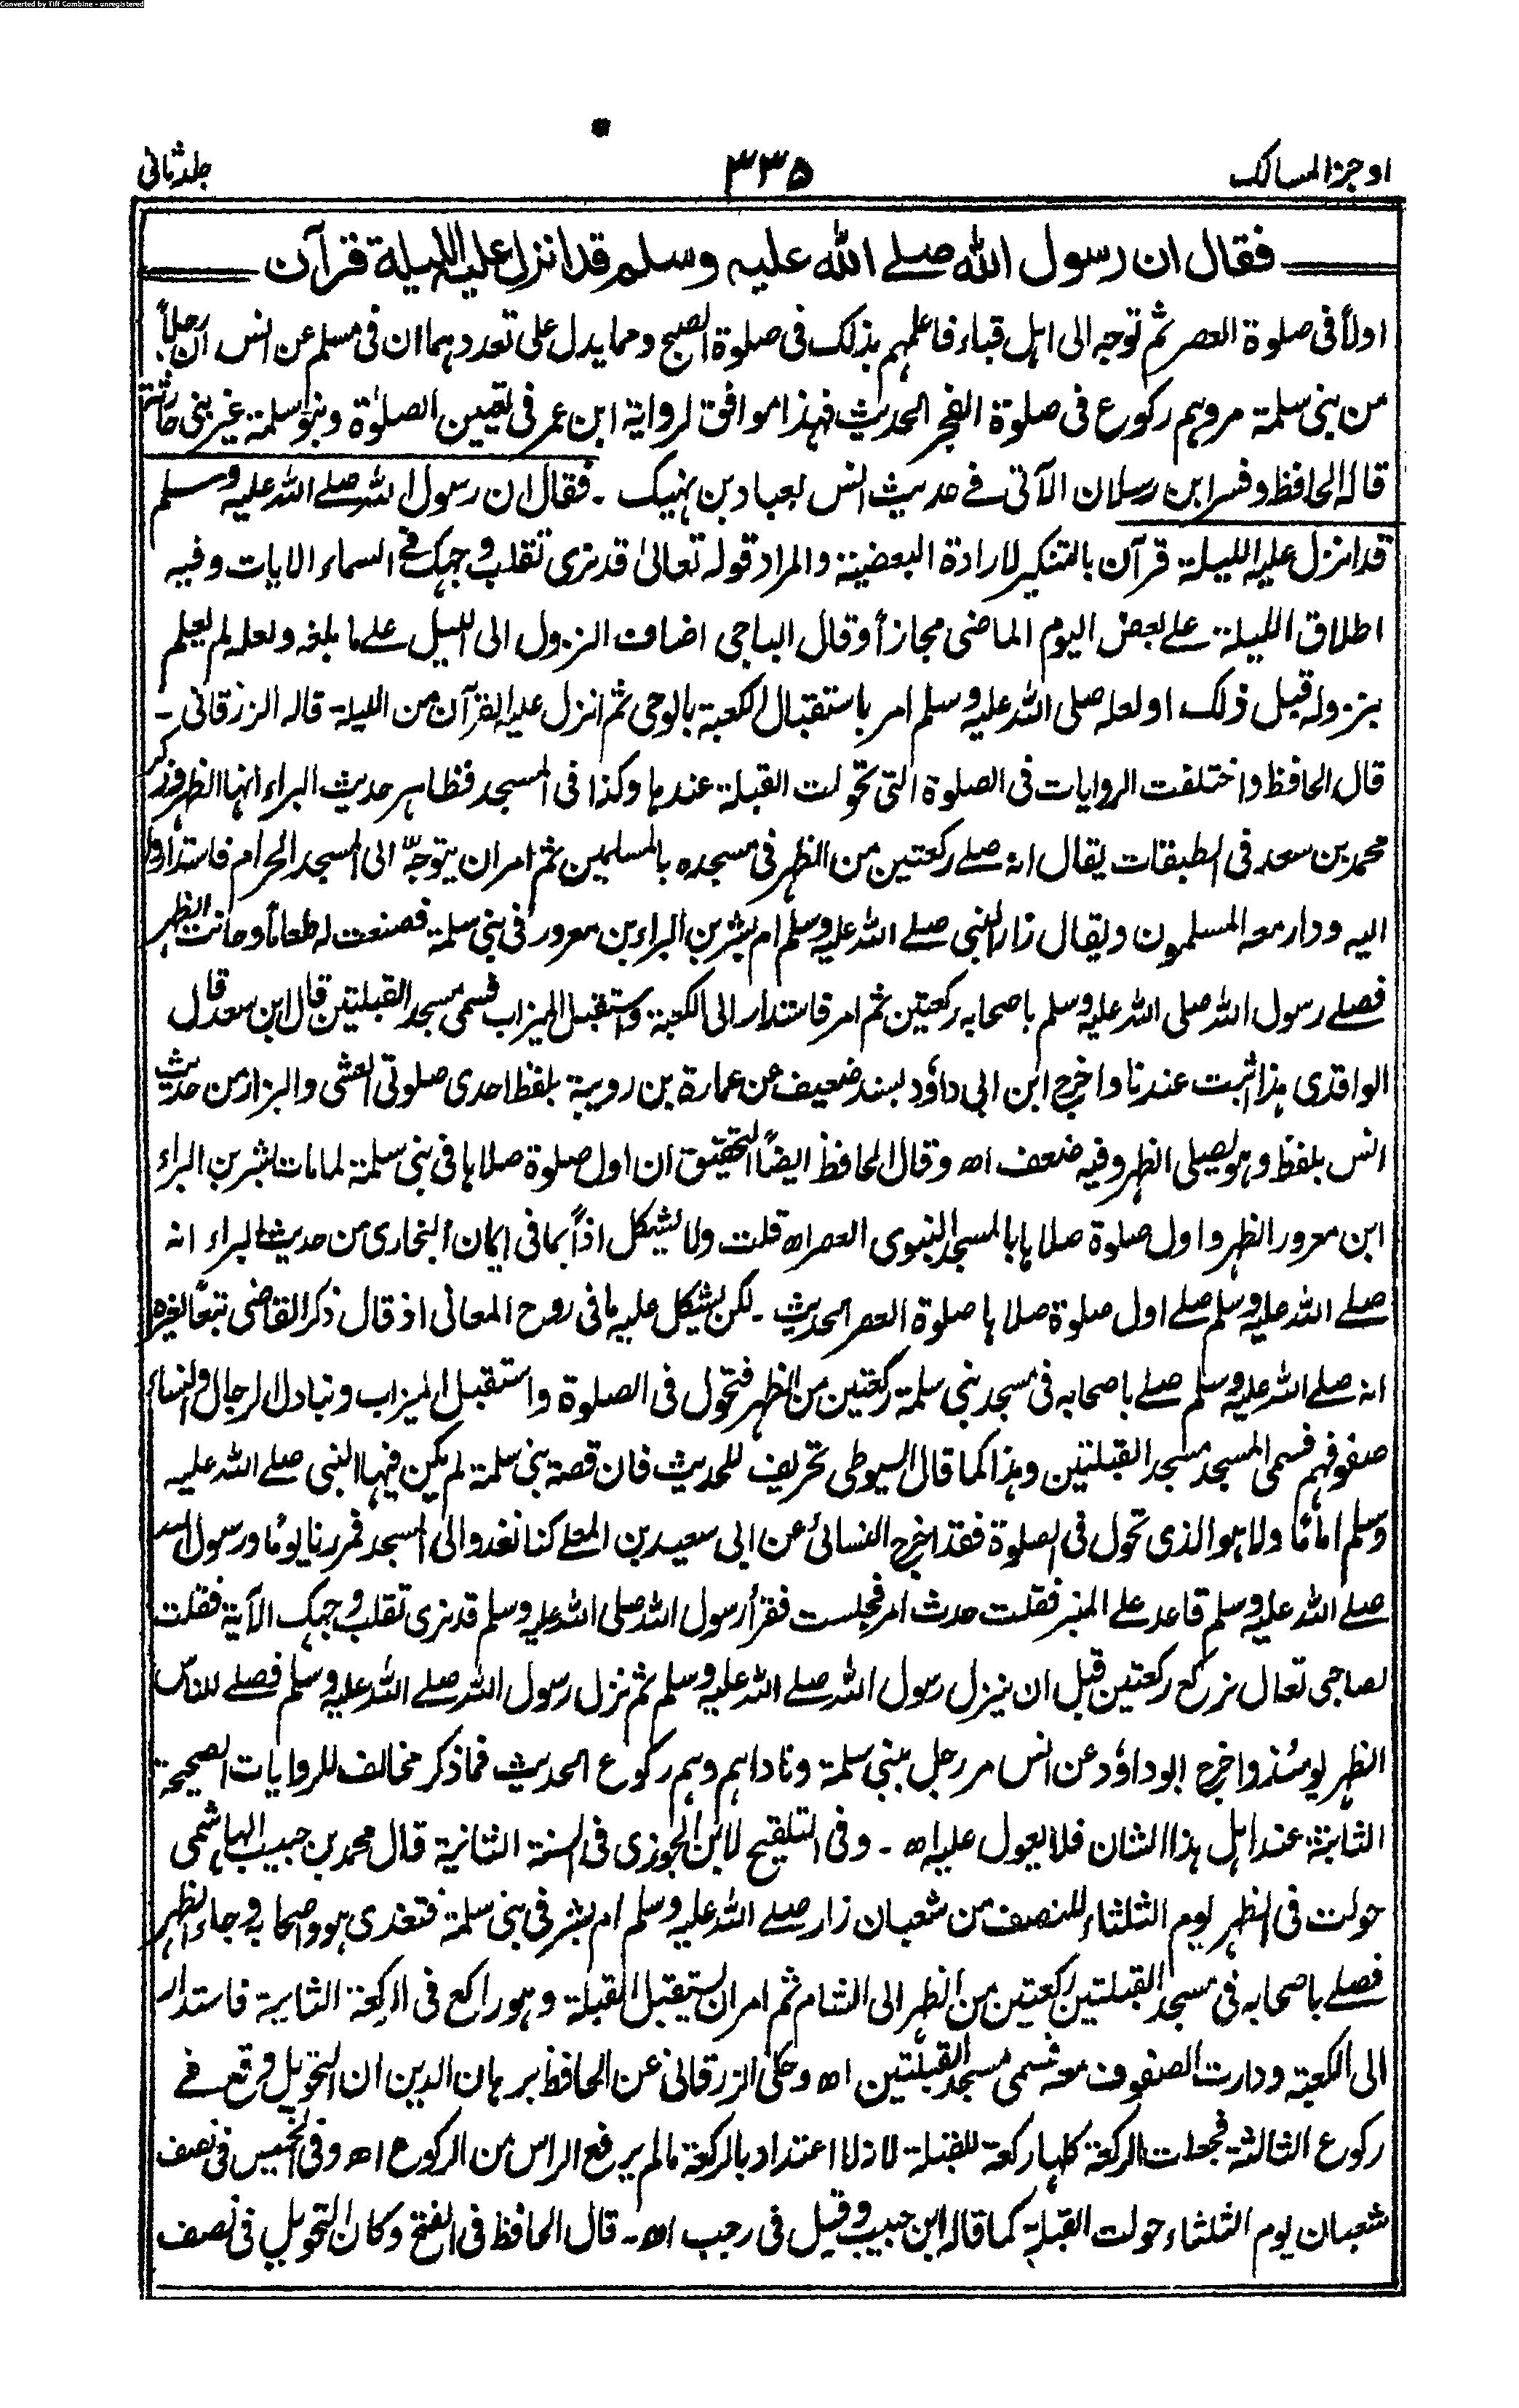 Converted by Tiff Combine - unregistered
اوجز المسالک ۳۳۵ جلد ثانی
فقال ان رسول الله صلے الله علیہ وسلم قد انزل علیہ اللیلة قرآن
اولاً فی صلوة العصر ثم توجہ الی اہل قباء فاعلمہم بذلک فی صلوة الصبح ومما یدل علی تعددہما ان فی مسلم عن انس ان رجلاً
من بنی سلمة مر وہم رکوع فی صلوة الفجر الحدیث فہذا موافق لروایة ابن عمر فی تعیین الصلوٰة وبنو سلمة غیر بنی حارثة
قالہ الحافظ وفسر ابن رسلان الآتی فے حدیث انس بعباد بن نہیک ۔ فقال ان رسول الله صلے الله علیہ وسلم
قد انزل علیہ اللیلة قرآن بالتنکیر لارادة البعضیة والمراد قولہ تعالیٰ قد نری تقلب وجہک فے السماء الایات وفیہ
اطلاق اللیلة علے بعض الیوم الماضی مجازاً وقال الباجی اضاف النزول الی اللیل علے ما بلغہ ولعلہ لم یعلم
بنزولہ قبل ذلک او لعلہ صلی الله علیہ وسلم امر باستقبال الکعبة بالوحی ثم انزل علیہ القرآن من اللیلة قالہ الزرقانی ۔
قال الحافظ واختلفت الروایات فی الصلوة التی تحولت القبلة عندہا وکذا فی المسجد فظاہر حدیث البراء انہا الظہر فذکر
محمد بن سعد فی الطبقات یقال انہ صلے رکعتین من الظہر فی مسجدہ بالمسلمین ثم امر ان یتوجّہ الی المسجد الحرام فاستداروا
الیہ ودار معہ المسلمون ویقال زار النبی صلے الله علیہ وسلم ام بشر بن البراء بن معرور فی بنی سلمة فصنعت لہ طعاماً وحانت الظہر
فصلے رسول الله صلی الله علیہ وسلم باصحابہ رکعتین ثم امر فاستدار الی الکعبة واستقبل المیزاب فسمی مسجد القبلتین قال ابن سعد قال
الواقدی ہذا اثبت عندنا واخرج ابن ابی داوٗد بسند ضعیف عن عمارة بن رویبة بلفظ احدی صلوتی العشی والبزار من حدیث
انس بلفظ وہو یصلی الظہر وفیہ ضعف اھ وقال الحافظ ایضاً التحقیق ان اول صلوة صلاہا فی بنی سلمة لما مات بشر بن البراء
ابن معرور الظہر واول صلوة صلاہا بالمسجد النبوی العصر اھ قلت ولا یشکل اذاً بما فی ایمان البخاری من حدیث البراء انہ
صلے الله علیہ وسلم صلے اول صلوة صلاہا صلوة العصر الحدیث ۔ لکن یشکل علیہ ما فی روح المعانی اذ قال ذکر القاضی تبعاً لغیرہ
انہ صلے الله علیہ وسلم صلے باصحابہ فی مسجد بنی سلمة رکعتین من الظہر فتحول فی الصلوة واستقبل المیزاب وتبادل الرجال والنساء
صفوفہم فسمی المسجد مسجد القبلتین وہذا کما قال السیوطی تحریف للحدیث فان قصة بنی سلمة لم یکن فیہا النبی صلے الله علیہ
وسلم اماماً ولا ہو الذی تحول فی الصلوة فقد اخرج النسائی عن ابی سعید بن المعلے کنا نغدو الی المسجد فمررنا یوماً ورسول الله
صلے الله علیہ وسلم قاعد علے المنبر فقلت حدث امر فجلست فقرأ رسول الله صلی الله علیہ وسلم قد نری تقلب وجہک الآیة فقلت
لصاحبی تعال نرکع رکعتین قبل ان ینزل رسول الله صلے الله علیہ وسلم ثم نزل رسول الله صلے الله علیہ وسلم فصلے للناس
الظہر یومئذ واخرج ابو داوٗد عن انس مر رجل ببنی سلمة وناداہم وہم رکوع الحدیث فما ذکر مخالف للروایات الصحیحة
الثابتة عند اہل ہذا الشان فلا یعول علیہ اھ ۔ وفی التلقیح لابن الجوزی فی السنة الثانیة قال محمد بن حبیب الہاشمی
حولت فی الظہر یوم الثلثاء للنصف من شعبان زار صلے الله علیہ وسلم ام بشر فی بنی سلمة فتغدی ہو واصحابہ وجاء الظہر
فصلے باصحابہ فی مسجد القبلتین رکعتین من الظہر الی الشام ثم امر ان یستقبل القبلة وہو راکع فی الرکعة الثانیة فاستدار
الی الکعبة ودارت الصفوف معہ فسمی مسجد القبلتین اھ وحکی الزرقانی عن الحافظ برہان الدین ان التحویل وقع فے
رکوع الثالثة فجعلت الرکعة کلہا رکعة للقبلة لانہ لا اعتداد بالرکعة مالم یرفع الراس من الرکوع اھ وفی الخمیس فی نصف
شعبان یوم الثلثاء حولت القبلة کما قالہ ابن حبیب وقیل فی رجب اھ ۔ قال الحافظ فی الفتح وکان التحویل فی نصف